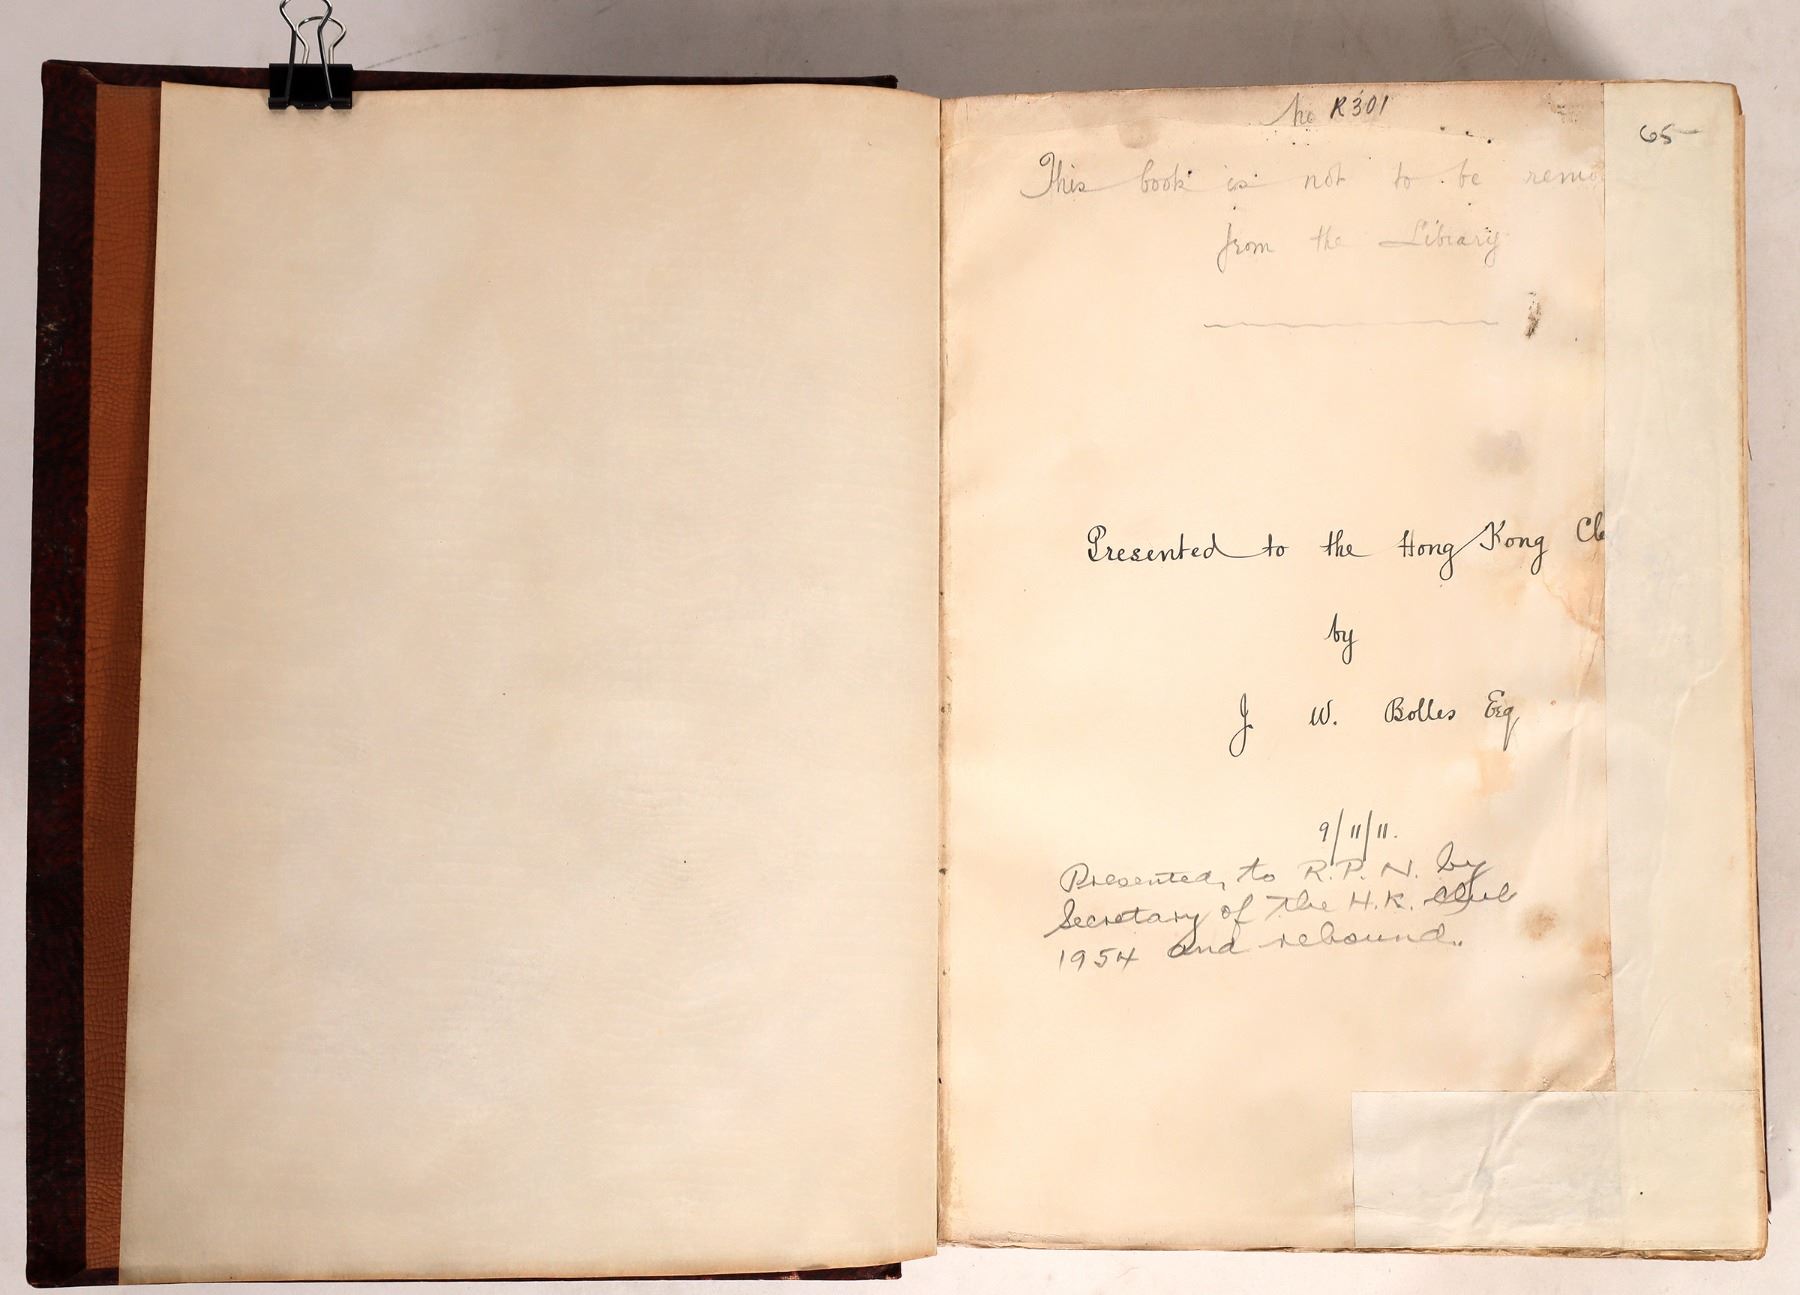 No R301
65-
This book is not to be remo
from the Library
Presented to the Hong Kong Cl
by
J W. Bolles Esq
9/11/11.
Presented, to R.P.N. by
Secretary of the H.K. Club
1954 and rebound..